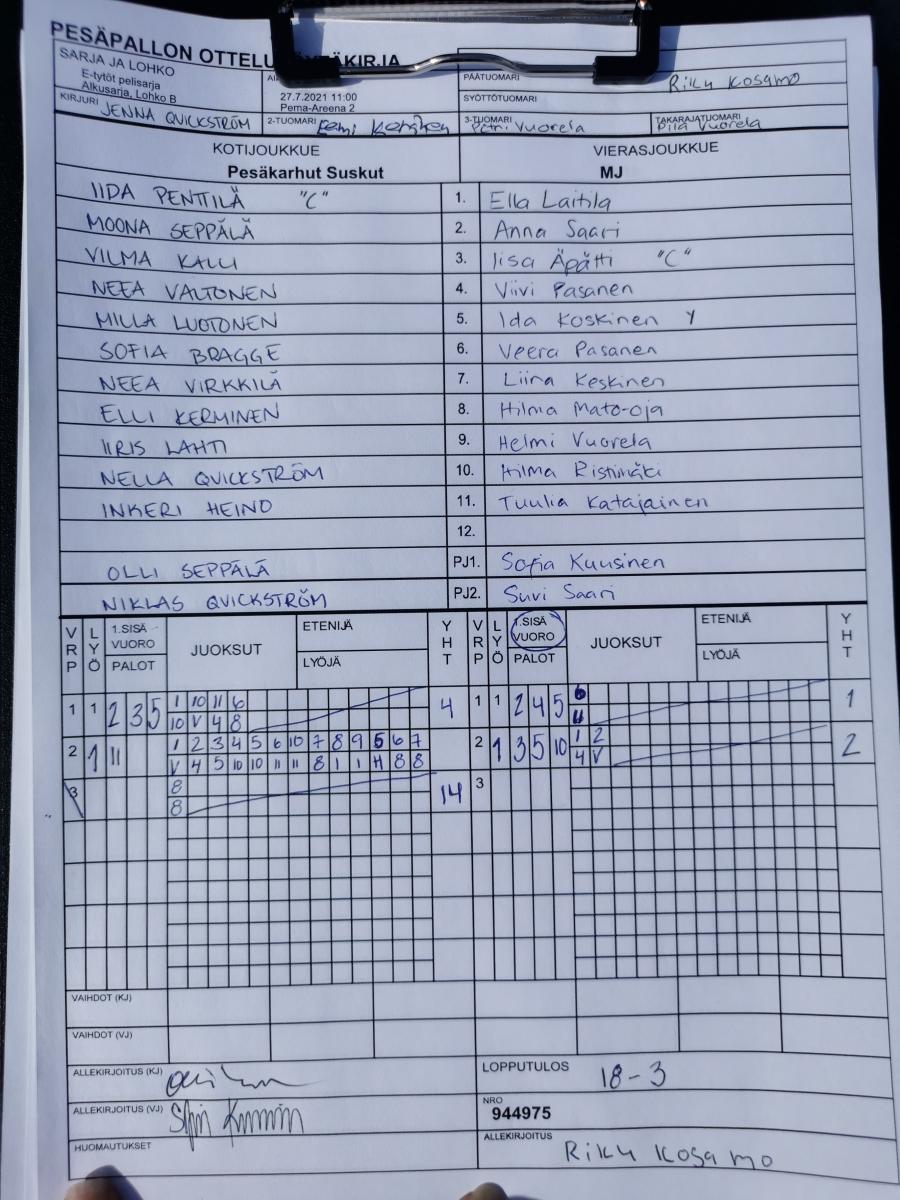 PESÄPALLON OTTELUPÖYTÄKIRJA
SARJA JA LOHKO
E-tytöt pelisarja
Alkusarja, Lohko B
27.7.2021 11:00
Pema-Areena 2
PÄÄTUOMARI Riku Kosamo
SYÖTTÖTUOMARI
KIRJURI JENNA QUICKSTRÖM
2-TUOMARI
3-TUOMARI Petri Vuorela
TAKARAJATUOMARI Vuorela
KOTIJOUKKUE VIERASJOUKKUE
Pesäkarhut Suskut MJ
IIDA PENTTILÄ "C" 1. Ella Laitila
MOONA SEPPÄLÄ 2. Anna Saari
VILMA KALLI 3. Iisa Äpätti "C"
NEEA VALTONEN 4. Viivi Pasanen
MILLA LUOTONEN 5. Ida Koskinen Y
SOFIA BRAGGE 6. Veera Pasanen
NEEA VIRKKILÄ 7. Liina Keskinen
ELLI KERMINEN 8. Hilma Mato-oja
IIRIS LAHTI 9. Helmi Vuorela
NELLA QUICKSTRÖM 10. Hilma Ristimäki
INKERI HEINO 11. Tuulia Katajainen
12.
OLLI SEPPÄLÄ PJ1. Sofia Kuusinen
NIKLAS QVICKSTRÖM PJ2. Suvi Saari
VRP LYÖ 1.SISÄ VUORO PALOT JUOKSUT ETENIJÄ LYÖJÄ YHT VRP LYÖ 1.SISÄ VUORO PALOT JUOKSUT ETENIJÄ LYÖJÄ YHT
1 1 2 3 5 1 10 11 6 4 1 1 2 4 5 6 1
10 V 4 8 11
2 1 11 1 2 3 4 5 6 10 7 8 9 5 6 7 2 1 3 5 10 1 2 2
V 4 5 10 10 11 11 8 1 1 H 8 8 4 V
3 8 14 3
8
VAIHDOT (KJ)
VAIHDOT (VJ)
ALLEKIRJOITUS (KJ)
LOPPUTULOS 18-3
ALLEKIRJOITUS (VJ)
NRO
944975
HUOMAUTUKSET
ALLEKIRJOITUS
Riku Kosamo